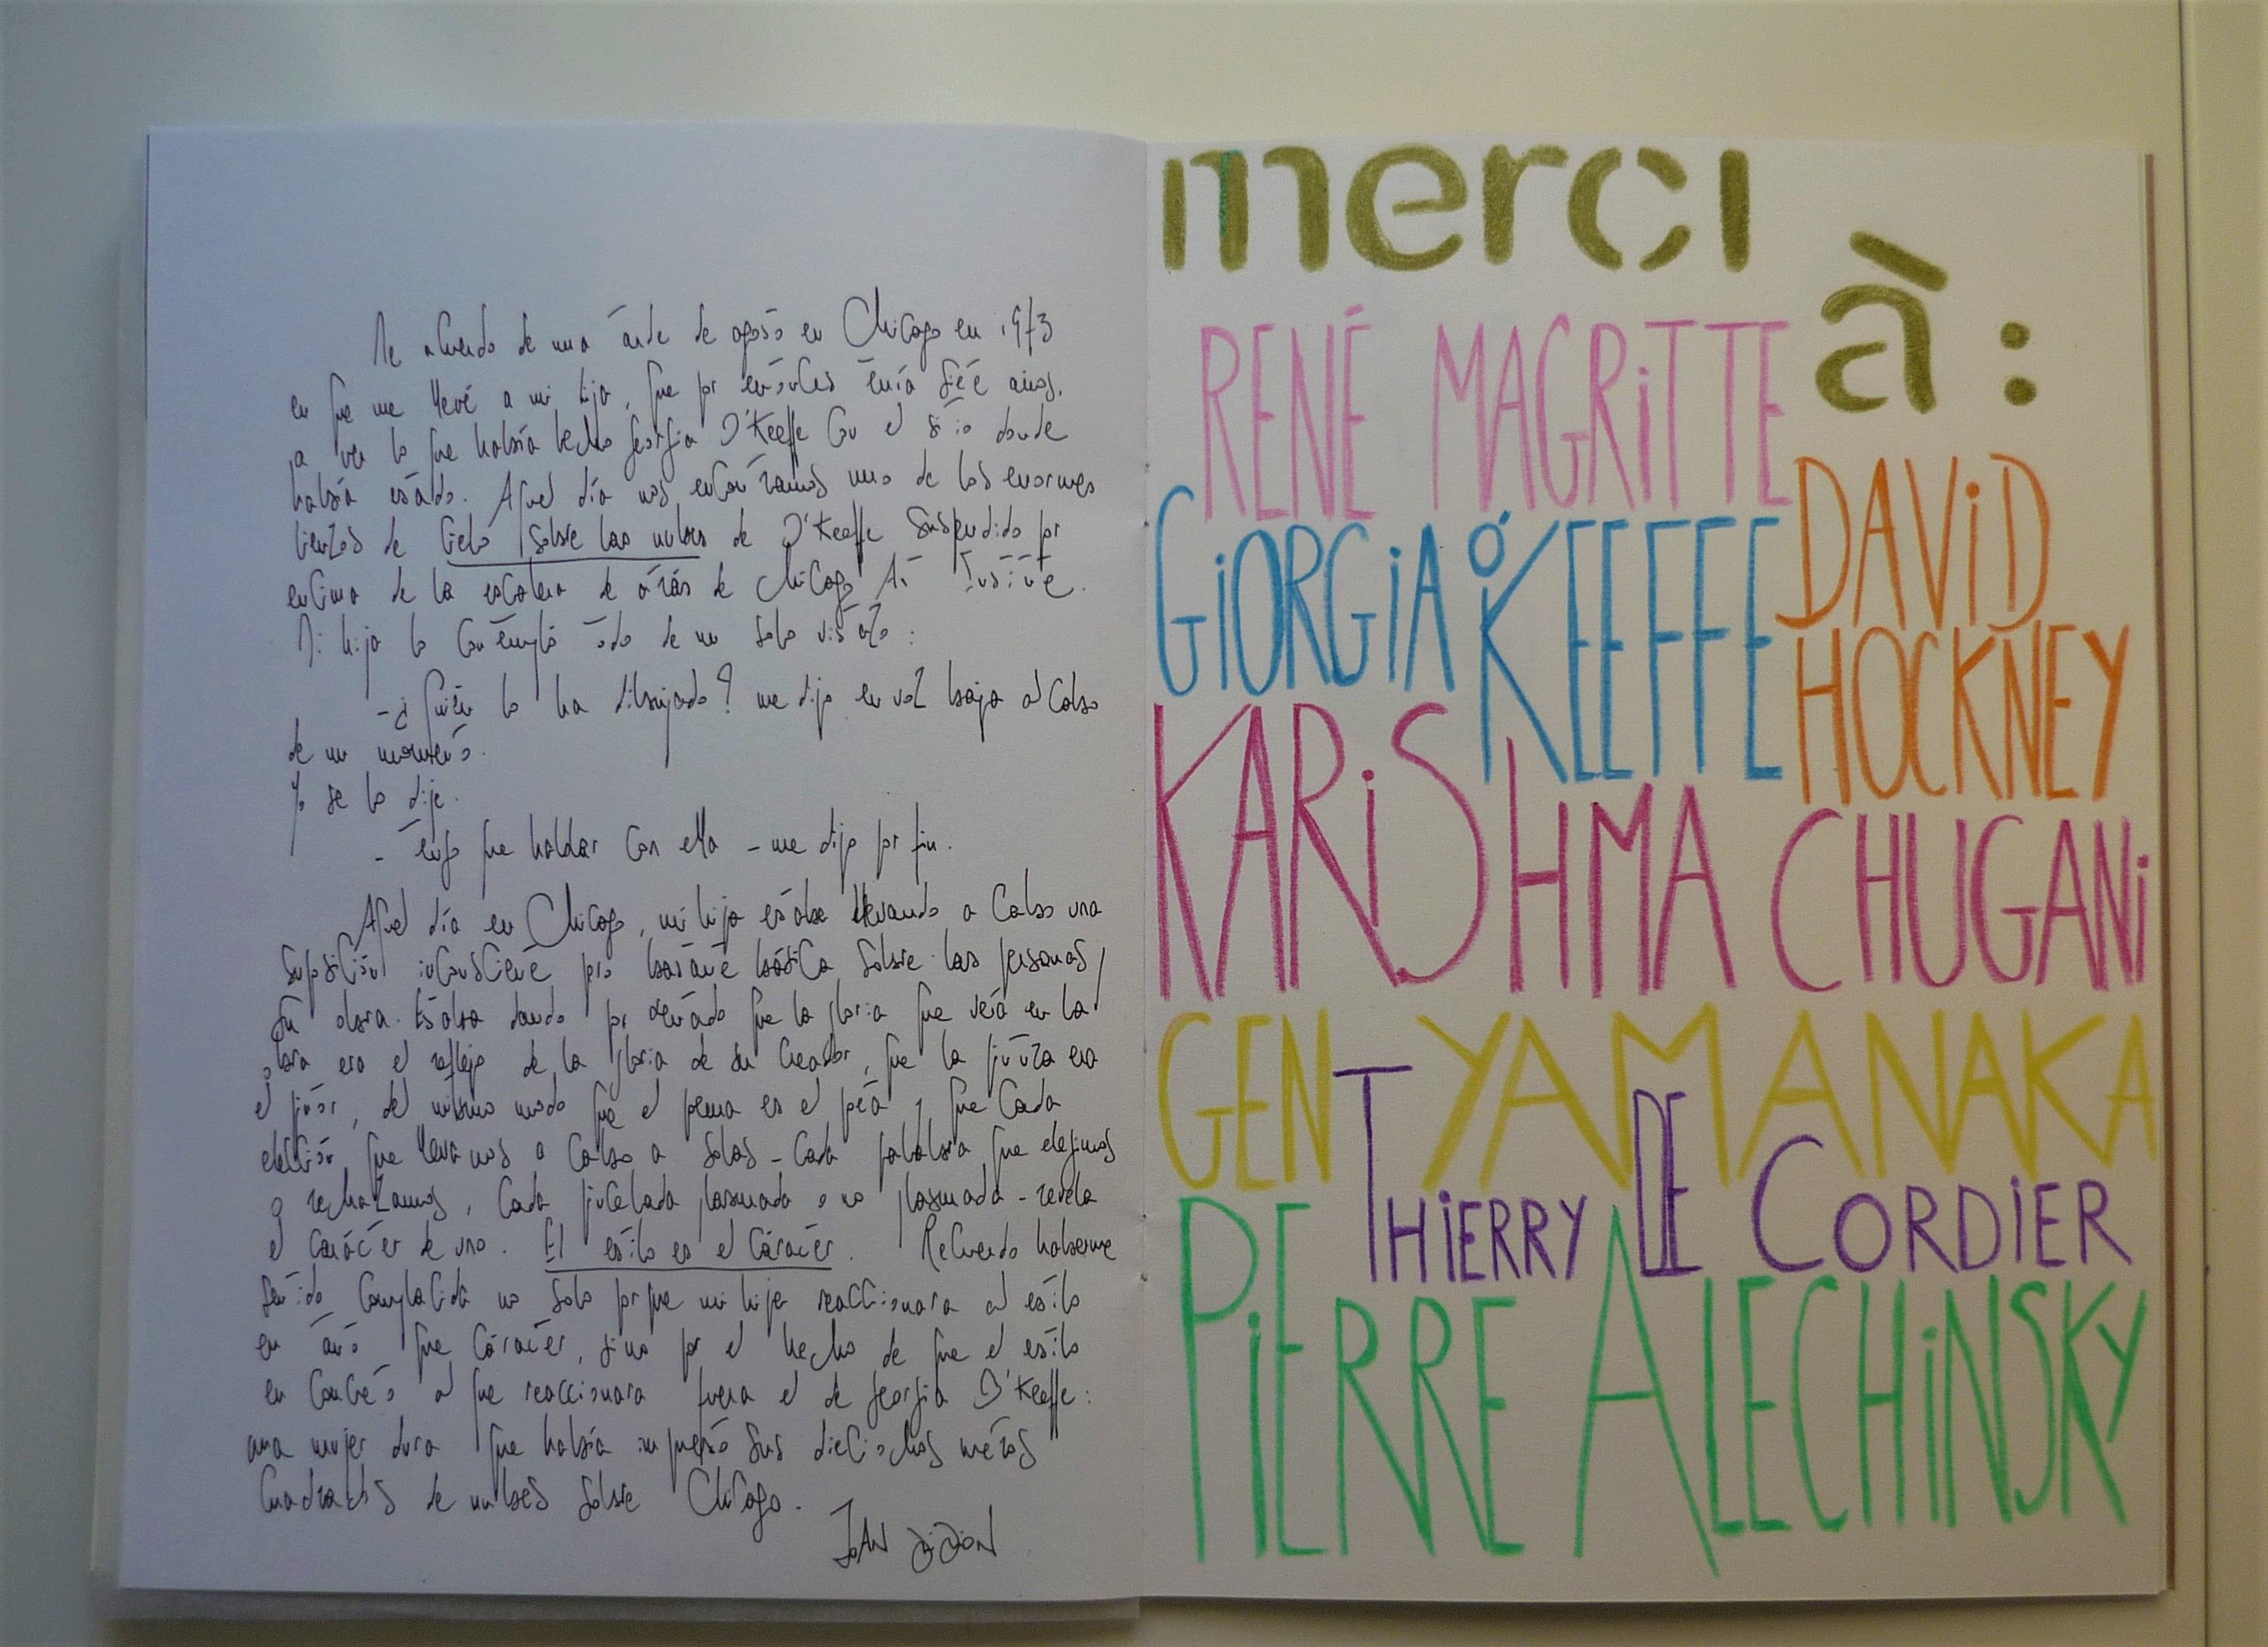 Me acuerdo de una tarde de agosto en Chicago en 1973
en que me llevé a mi hija, que por entonces tenía siete años,
a ver lo que había hecho Georgia O'Keeffe con el sitio donde
había estado. Aquel día nos encontramos uno de los enormes
lienzos de Cielo sobre las nubes de O'Keeffe suspendido por
encima de la escalera de atrás de Chicago Art Institute.
Mi hija lo contempló todo de un solo vistazo:
-¿Quién lo ha dibujado? me dijo en voz baja al cabo
de un momento.
Yo se lo dije.
- Tengo que hablar con ella - me dijo por fin.
Aquel día en Chicago, mi hija estaba llevando a cabo una
suposición inconsciente pero bastante básica sobre las personas y
su obra. Estaba dando por sentado que la gloria que veía en la
obra era el reflejo de la gloria de su creador, que la pintura era
el pintor, del mismo modo que el poema es el poeta y que cada
elección que llevamos a cabo a solas - cada palabra que elegimos
o rechazamos, cada pincelada plasmada o no plasmada - revela
el carácter de uno. El estilo es el carácter. Recuerdo haberme
sentido complacida no solo porque mi hija reaccionara al estilo
en tanto que carácter, sino por el hecho de que el estilo
en concreto al que reaccionara fuera el de Georgia O'Keeffe:
una mujer dura que había impuesto sus dieciochos metros
cuadrados de nubes sobre Chicago.
JOAN DIDION
merci
à :
RENÉ MAGRITTE
GIORGIA O'KEEFFE
DAVID
HOCKNEY
KARISHMA CHUGANI
GEN YAMANAKA
THIERRY DE CORDIER
PIERRE ALECHINSKY